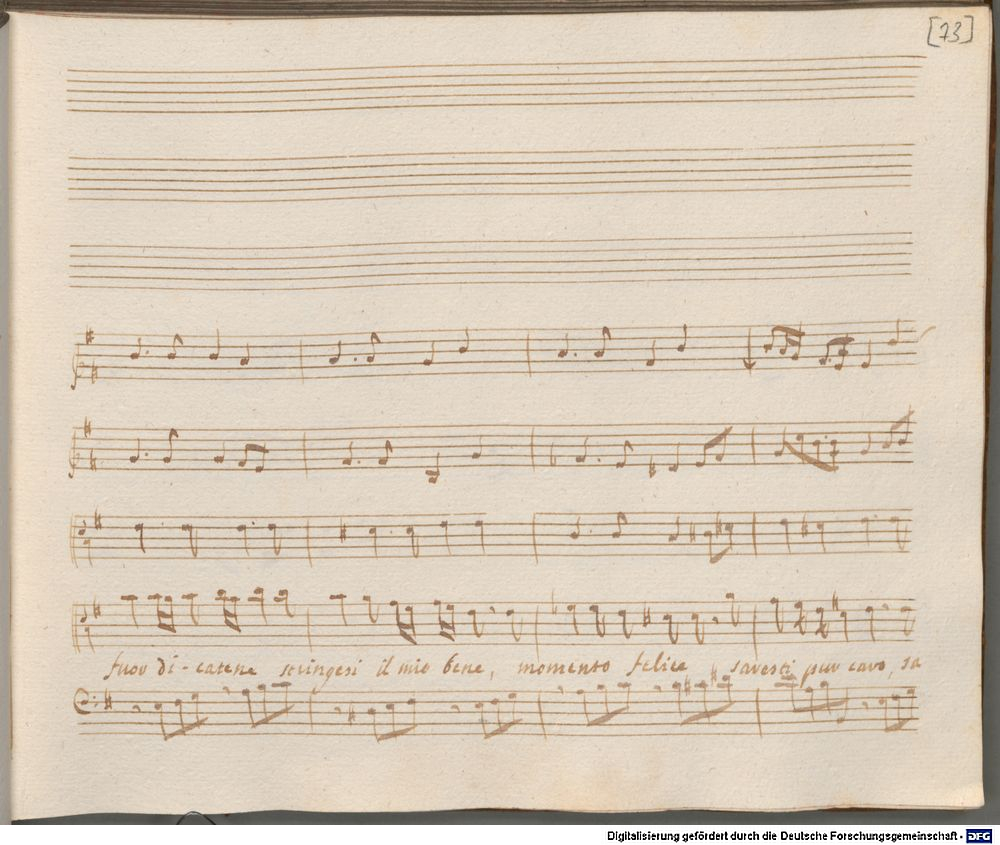 [73]
fuor di-catene stringesi il mio bene, momento felice saresti pur caro, sa
Digitalisierung gefördert durch die Deutsche Forschungsgemeinschaft - DFG